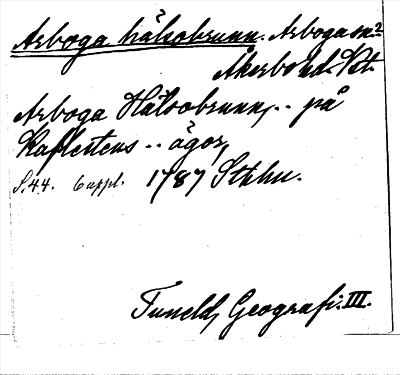 Arboga hälsobrunn. Arboga sn?
Åkerbo hd. Vstm.
Arboga Hälsobrunn, .. på
Kaflestens .. ägor,
S. 44. 6 uppl. 1787 Sthlm.
Tuneld, Geografi. III.